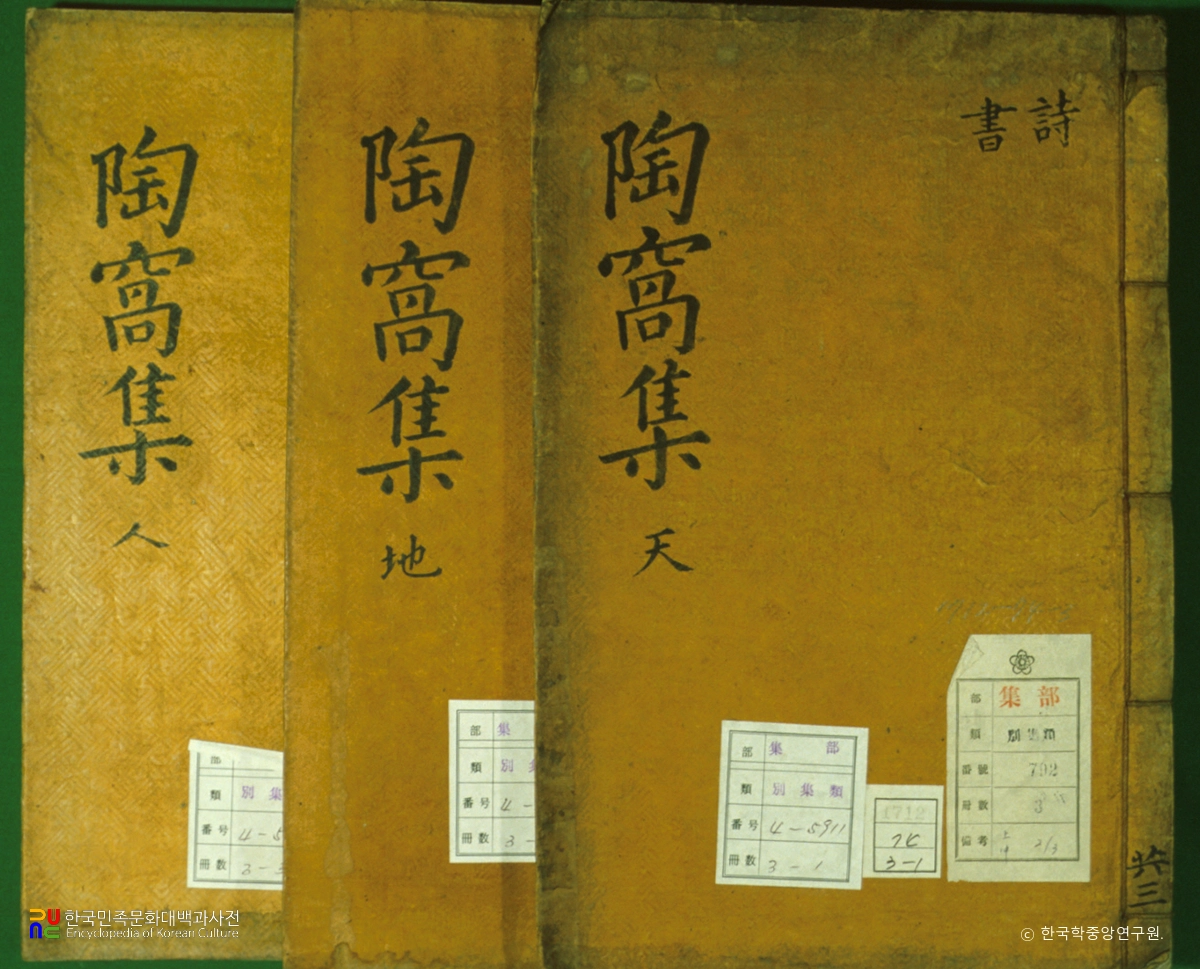 陶窩集
人
陶窩集
地
陶窩集
天
詩
書
共三
部
類 別集
番号 4-5
冊数 3-3
部 集
類 別集
番号 4-
冊数 3-
部 集部
類 別集類
番号 4-5911
冊数 3-1
1712
74
3-1
部 集部
類 別集類
番號 792
冊數 3
備考 2/3
한국민족문화대백과사전
Encyclopedia of Korean Culture
ⓒ 한국학중앙연구원.